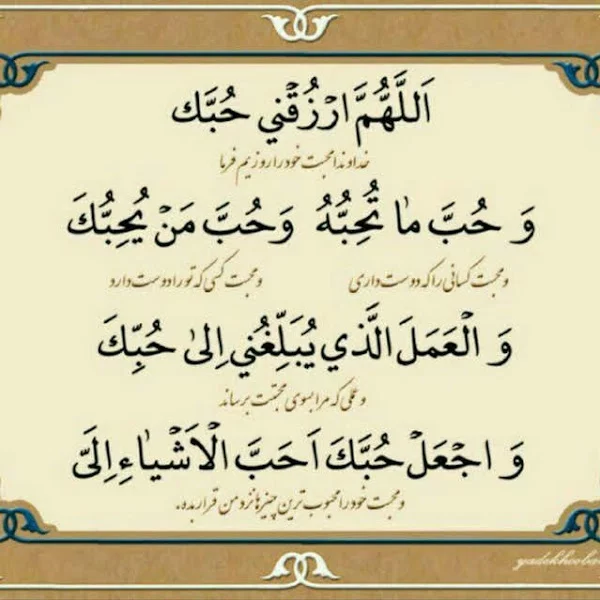 اَللَّهُمَّ ارْزُقْني حُبَّك
خداوندا محبت خود را روزیم فرما
وَ حُبَّ مٰا تُحِبُّهُ وَحُبَّ مَنْ يُحِبُّكَ
و محبت کسانی را که دوست داری و محبت کسی که تو را دوست دارد
وَ الْعَمَلَ الَّذي يُبَلِّغُني اِلىٰ حُبِّكَ
و عملی که مرا بسوی محبتت برساند
وَ اجْعَلْ حُبَّكَ اَحَبَّ الْاَشْيٰاءِ اِلَىَّ
و محبت خود را محبوب ترین چیزها نزد من قرار بده.